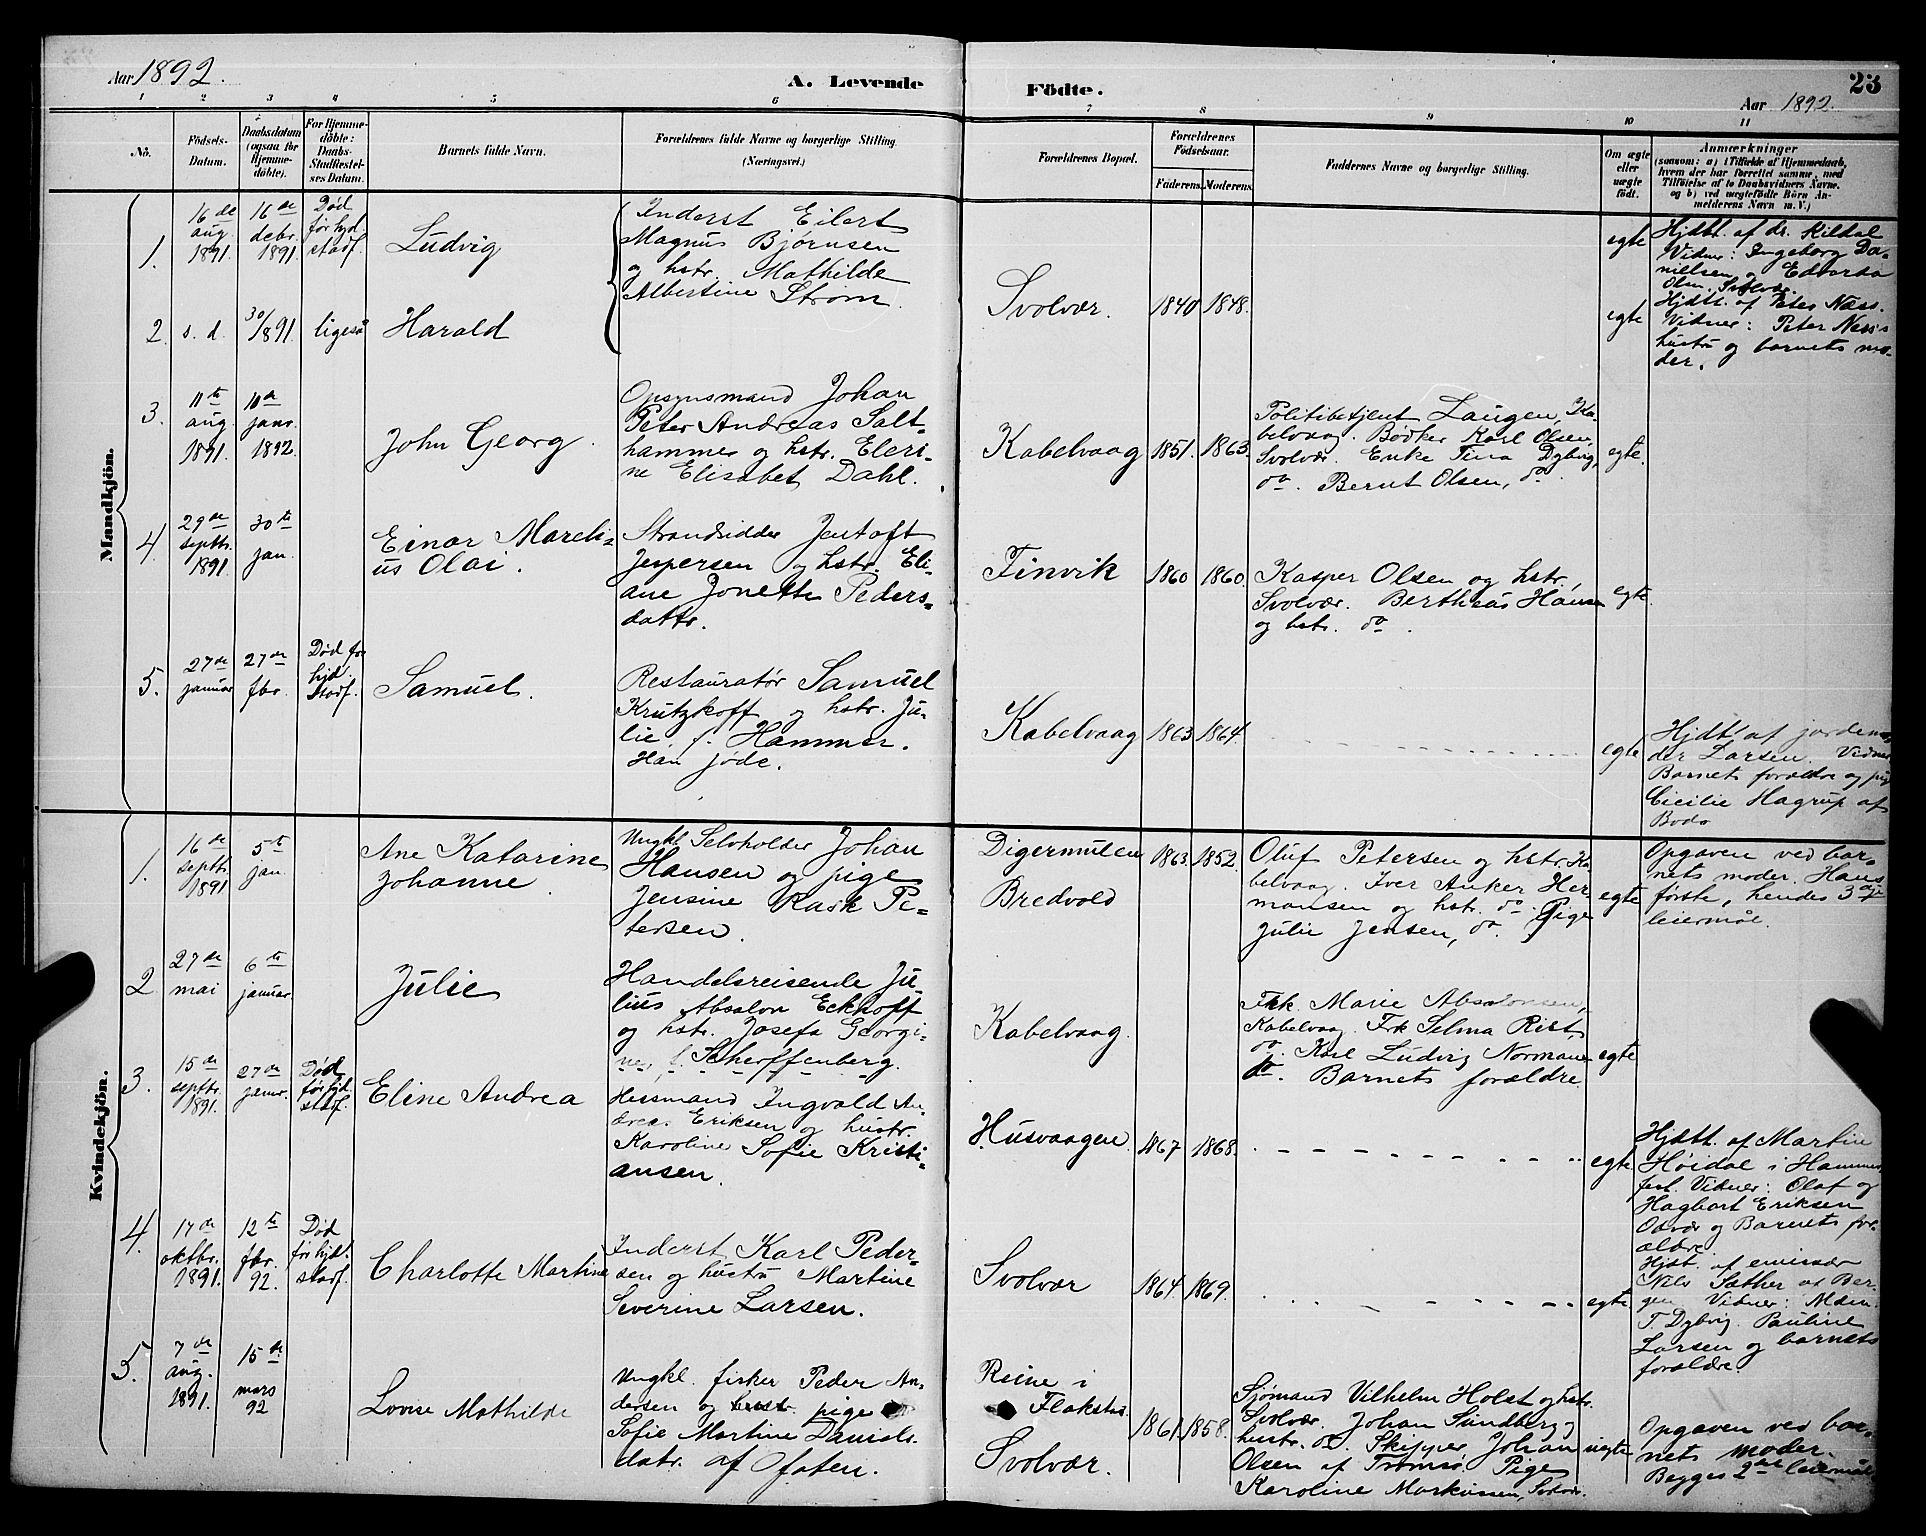 Aar 1892.
A. Levende
Födte.
23
Aar 1892.
1 2 3 4 5 6 7 8 9 10 11
No.
Födsels-
Datum.
Daabsdatum
(ogsaa for
Hjemme-
döbte).
For Hjemme-
döbte:
Daabs-
Stadfæstel-
ses Datum.
Barnets fulde Navn.
Forældrenes fulde Navne og borgerlige Stilling.
(Næringsvei.)
Forældrenes Bopæl.
Forældrenes
Födselsaar.
Faderens. Moderens.
Faddernes Navne og borgerlige Stilling.
Om ægte
eller
uægte
født.
Anmærkninger
(saasom: a) i Tilfælde af Hjemmedaab,
hvem der har forrettet samme, med
Tilföielse af to Daabsvidners Navne,
og b) ved uægtefödte Börn An-
melderens Navn m. V.)
Mandkjön.
1.
16de
aug.
1891.
16de
debr.
1891.
Død
før hjd
stadf.
Ludvig
Inderst Eilert
Magnus Bjørnsen
og hstr. Mathilde
Albertine Strøm.
Svolvær. 1840 1848.
egte
Hjdt. af dr. Kildal
Vidner: Ingeborg Da-
nielsen og Edvarda
Olsn. Svolvær.
2.
s. d.
30/1891.
ligeså
Harald
egte
Hjdt. af Peter Næss.
Vidner: Peter Næss's
hustru og barnets mo-
der.
3.
11te
aug.
1891.
10de
janr.
1892.
John Georg.
Opsynsmand Johan
Peter Andreas Salt-
hammer og hstr. Eleri-
ne Elisabet Dahl.
Kabelvaag 1851. 1863.
Politibetjent Laugen, Ka-
belvaag. Bødker Karl Olsen,
Svolvær. Enke Tina Dybvig,
do. Bernt Olsen, do.
egte.
4.
29de
septbr.
1891.
30te
jan.
Einar Mareli-
us Olai.
Strandsidder Jentoft
Jespersen og hstr. Eli-
ane Jonette Peders-
dattr.
Finvik 1860 1860.
Kasper Olsen og hstr.,
Svolvær. Bertheas Hansen
og hstr. do.
egte.
5.
27de
januar
27de
fbr.
Død før
hjd.
stadf.
Samuel.
Restauratør Samuel
Krutzkoff og hstr. Ju-
lie, f. Hammer.
Han jøde.
Kabelvaag 1863 1864.
egte
Hjdt. af jordemo-
der Larsen. Vidner
Barnets forældre og pige
Cicilie Hagrup af
Bodø
Kvindekjön.
1.
16de
septbr.
1891
5te
jan.
Ane Katarine
Johanne.
Ungkl. Selvholder Johan
Hansen og pige
Jensine Rask Pe-
tersen.
Digermulen
Bredvold
1863. 1852.
Oluf Petersen og hstr. Ka-
belvaag. Iver Anker Her-
mansen og hstr. do. Pige
Julie Jensen, do.
egte
Opgaven ved bar-
nets moder. Hans
første, hendes 3die
leiermål.
2
27de
mai
6te
januar.
Julie
Handelsreisende Ju-
lius Absalon Eckhoff
og hstr. Josefa Georgi-
ne, f. Scharffenberg.
Kabelvaag.
Frk. Marie Absalonsen,
Kabelvaag. Frk Selma Rist,
do. Karl Ludvig Normann
do. Barnets forældre
egte
3.
15de
septbr.
1891.
27de
janr.
Død
før hjd
stadf.
Eline Andrea
Huusmand Ingvald An-
dreas Eriksen og hustr.
Karoline Sofie Kristi-
ansen.
Husvaagen. 1867 1868.
egte
Hjdt. af Martin
Høidal i Hammer-
fest. Vidner: Olaf og
Hagbart Eriksen
Odvær og Barnets for-
ældre
4.
17de
oktbr.
1891.
12te
fbr.
92.
Død
før hjdt.
stadf.
Charlotte Martine
Inderst Karl Peder-
sen og hustru Martine
Severine Larsen.
Svolvær 1864. 1869.
egte
Hjdt. af emissær
Nils Sæther af Ber-
gen Vidner: Mden
T. Dybvig. Pauline
Larsen og barnets
forældre.
5.
7de
aug.
1891.
15de
mars
92
Lovise Mathilde
Ungkl. fisker Peder An-
dersen og hustr. pige
Sofie Martine Daniels-
datr. af Ofoten.
Reine i
Flakstad.
Svolvær.
1861. 1858.
Sjømand Vilhelm Holst og hstr.
Svolvær. Johan Sundberg og
hustr. do. Skipper Johan
Olsen af Tromsø. Pige
Karoline Markussen, Svolvær.
uegte
Opgaven ved bar-
nets moder.
Begges 2det leiermål